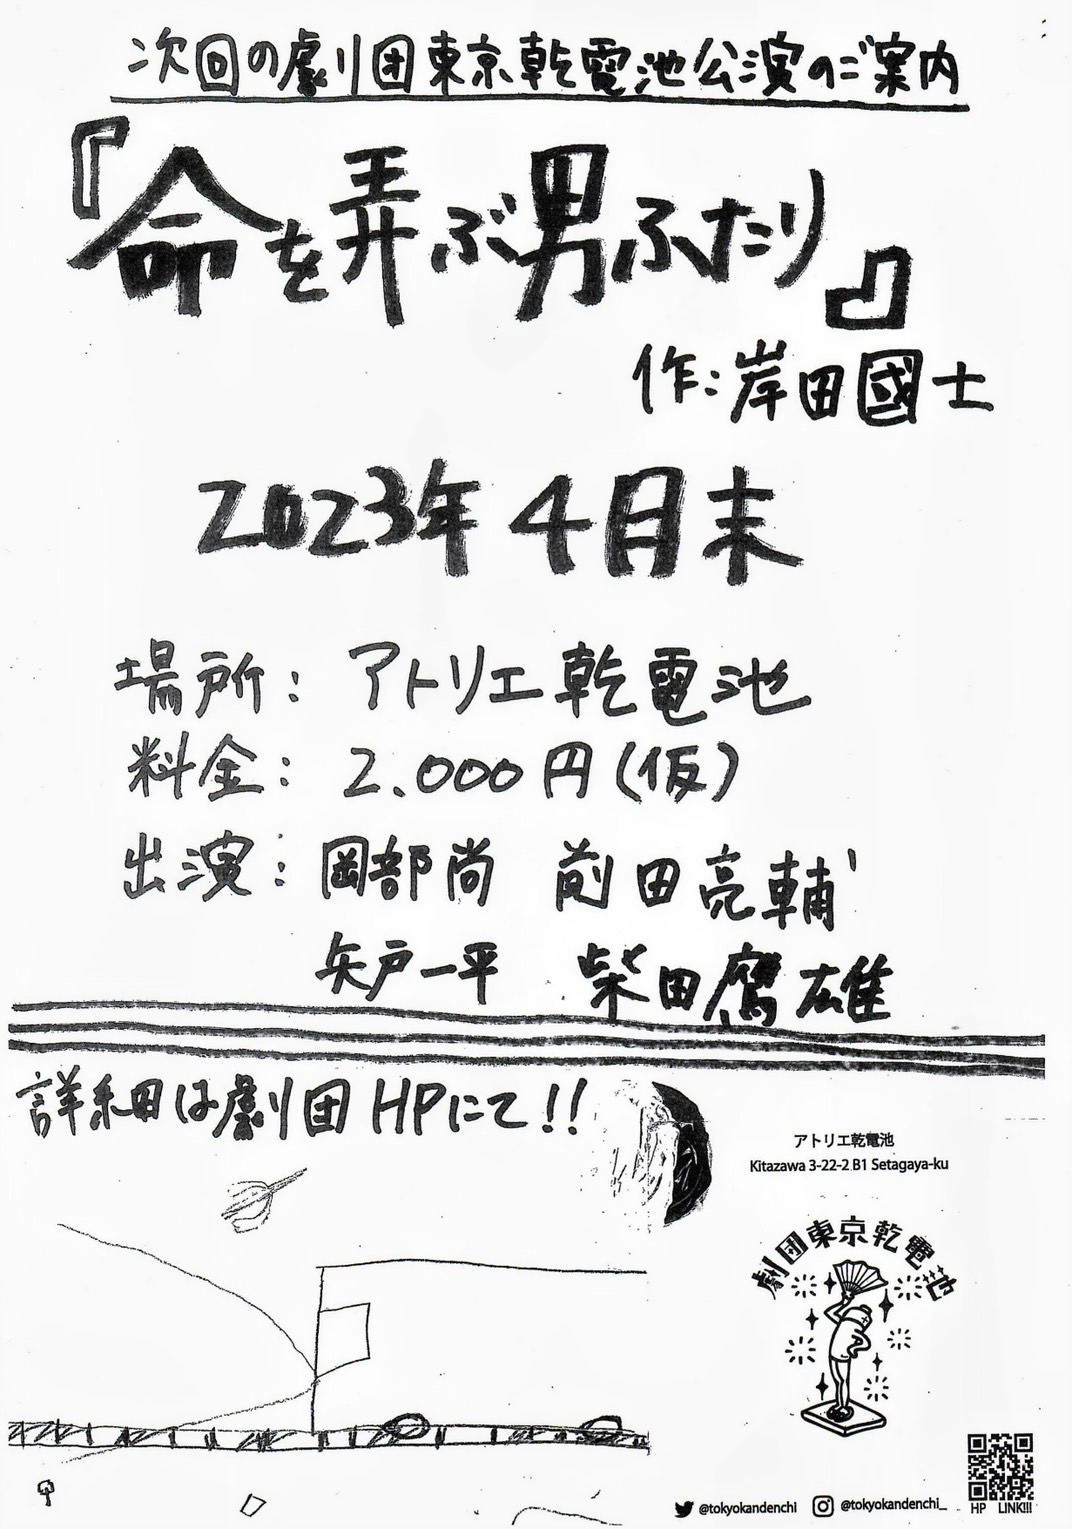 次回の劇団東京乾電池公演のご案内
『命を弄ぶ男ふたり』
作:岸田國士
2023年4月末
場所: アトリエ乾電池
料金: 2.000円(仮)
出演: 岡部尚 前田亮輔
矢戸一平 柴田鷹雄
詳細は劇団HPにて!!
アトリエ乾電池
Kitazawa 3-22-2 B1 Setagaya-ku
劇団東京乾電池
@tokyokandenchi @tokyokandenchi_
HP LINK!!!